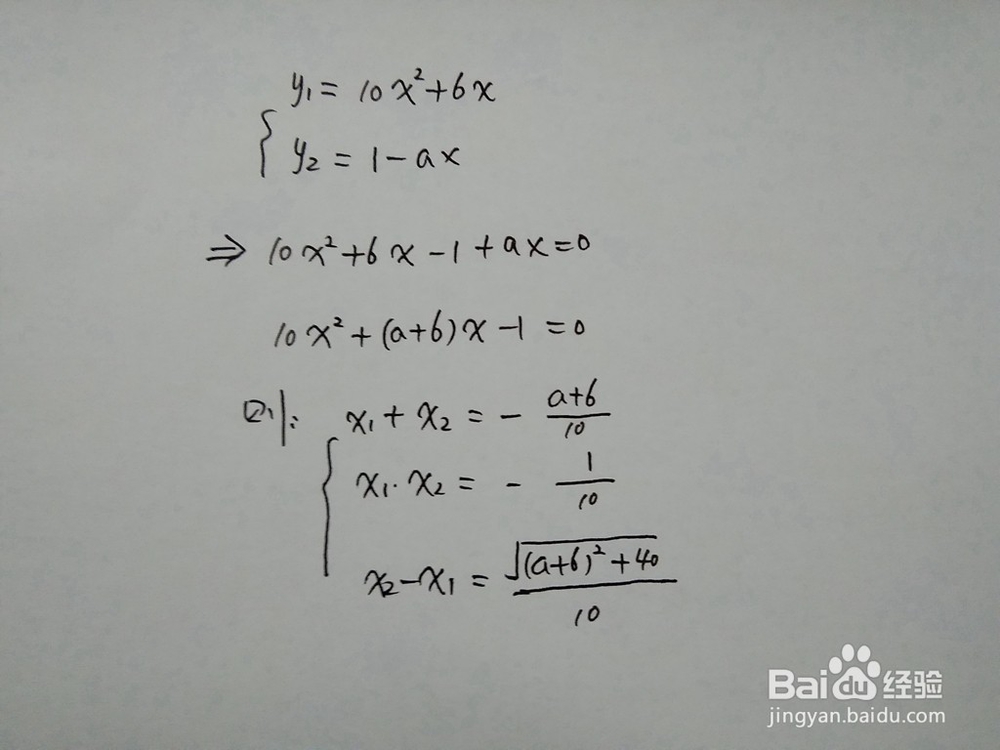 y₁ = 10x²+6x
y₂ = 1-ax
⇒ 10x²+6x-1+ax=0
10x²+(a+6)x-1=0
则: x₁+x₂ = - \frac{a+6}{10}
x₁·x₂ = - \frac{1}{10}
x₂-x₁ = \frac{\sqrt{(a+6)²+40}}{10}
Baidu经验
jingyan.baidu.com